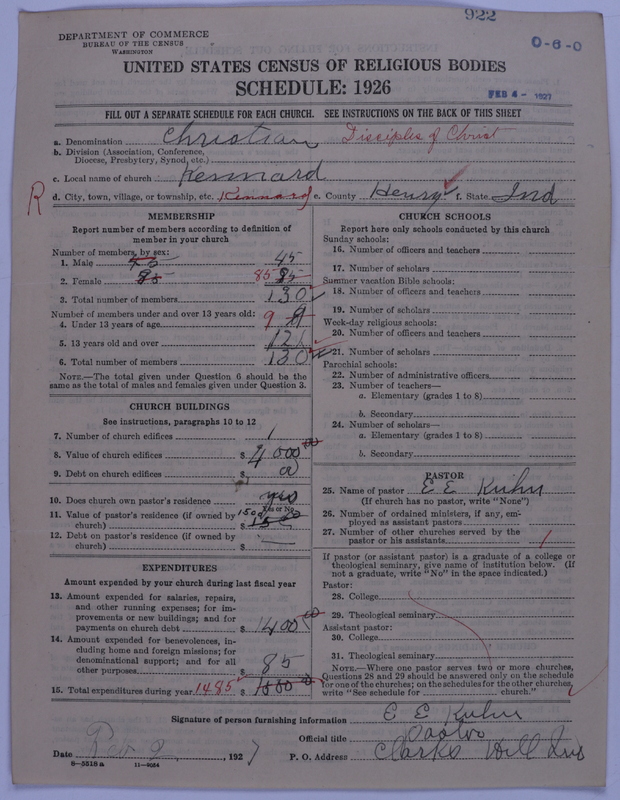 922
DEPARTMENT OF COMMERCE
BUREAU OF THE CENSUS
WASHINGTON
O-6-0
UNITED STATES CENSUS OF RELIGIOUS BODIES
SCHEDULE: 1926
FEB 4 - 1927
FILL OUT A SEPARATE SCHEDULE FOR EACH CHURCH. SEE INSTRUCTIONS ON THE BACK OF THIS SHEET
a. Denomination Christian Disciples of Christ
b. Division (Association, Conference,
Diocese, Presbytery, Synod, etc.)
c. Local name of church Kennard
R d. City, town, village, or township, etc. Kennard e. County Henry f. State Ind
MEMBERSHIP
Report number of members according to definition of
member in your church
Number of members, by sex:
1. Male 45 45
2. Female 85 85 85
3. Total number of members 130
Number of members under and over 13 years old:
4. Under 13 years of age 9 9
5. 13 years old and over 121
6. Total number of members 130
NOTE.—The total given under Question 6 should be the
same as the total of males and females given under Question 3.
CHURCH BUILDINGS
See instructions, paragraphs 10 to 12
7. Number of church edifices 1
8. Value of church edifices $ 4000 00
9. Debt on church edifices $ 00
10. Does church own pastor's residence yes
Yes or No
11. Value of pastor's residence (if owned by 1500
church) $ 1500
12. Debt on pastor's residence (if owned by
church) $
EXPENDITURES
Amount expended by your church during last fiscal year
13. Amount expended for salaries, repairs,
and other running expenses; for im-
provements or new buildings; and for
payments on church debt $ 1400 00
14. Amount expended for benevolences, in-
cluding home and foreign missions; for
denominational support; and for all
other purposes $ 85
15. Total expenditures during year 1485 $ 1500 00
CHURCH SCHOOLS
Report here only schools conducted by this church
Sunday schools:
16. Number of officers and teachers
17. Number of scholars
Summer vacation Bible schools:
18. Number of officers and teachers
19. Number of scholars
Week-day religious schools:
20. Number of officers and teachers
21. Number of scholars
Parochial schools:
22. Number of administrative officers
23. Number of teachers—
a. Elementary (grades 1 to 8)
b. Secondary
24. Number of scholars—
a. Elementary (grades 1 to 8)
b. Secondary
PASTOR
25. Name of pastor E E Kuhn
(If church has no pastor, write "None")
26. Number of ordained ministers, if any, em-
ployed as assistant pastors
27. Number of other churches served by the
pastor or his assistants 1
If pastor (or assistant pastor) is a graduate of a college or
theological seminary, give name of institution below. (If
not a graduate, write "No" in the space indicated.)
Pastor:
28. College
29. Theological seminary
Assistant pastor:
30. College
31. Theological seminary
NOTE.—Where one pastor serves two or more churches,
Questions 28 and 29 should be answered only on the schedule
for one of the churches; on the schedules for the other churches,
write "See schedule for church."
Signature of person furnishing information E E Kuhn
Official title Pastor
Date 2, 1927 P. O. Address Clarks Hill Ind
8-5518 a 11-9054